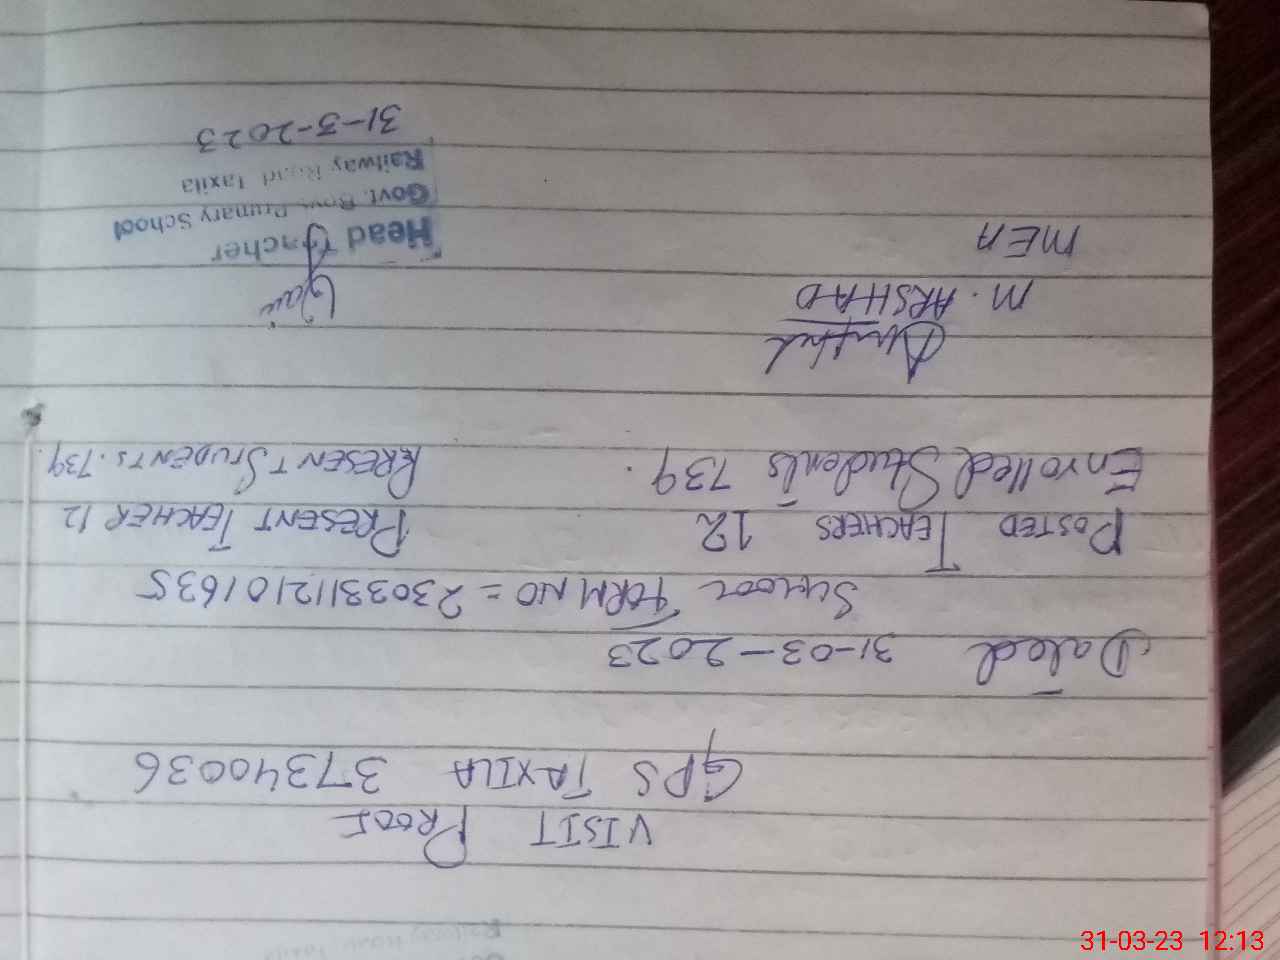 VISIT PROOF
GPS TAXILA 37340036
Dated 31-03-2023
SCHOOL FORM NO = 23033112101635
POSTED TEACHERS 12 PRESENT TEACHER 12
Enrolled Students 739. PRESENT STUDENTS. 739.
M. ARSHAD
MEA
Head Teacher
Govt. Boys Primary School
Railway Road Taxila
31-3-2023
31-03-23 12:13